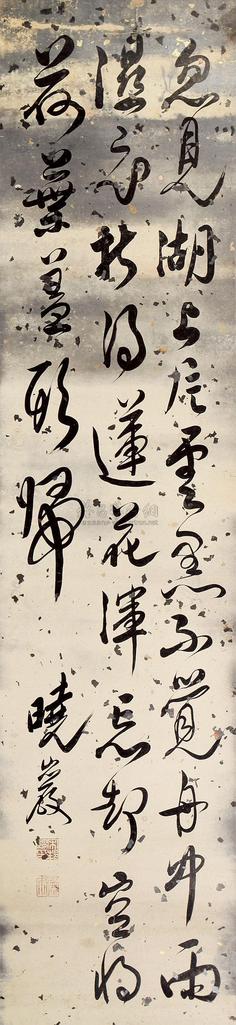 忽見湖上片雲飛不覺舟中雨
濕衣折得蓮花渾忘却空將
荷葉蓋頭歸
曉巖